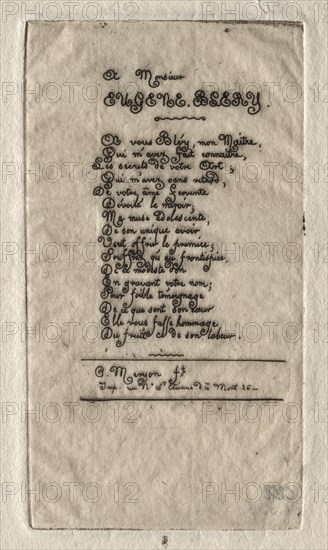 A Monsieur
EUGENE. BLERY.
A vous Bléry, mon Maître,
Qui m'avez fait connaître,
Les secrets de votre Art;
Qui m'avez sans retard,
De votre âme fervente
Dévoilé le miroir;
Ma muse Adolescente
De son unique avoir
Vient offrir le premice;
Souffrez qu'au frontispice
De ce modeste don
En gravant votre nom;
Pour foible témoignage
De ce que sent son cœur
Elle vous fasse hommage
Du fruit de son labeur.
C. Meryon ft
Imp. rue Nve St Etienne d. u Mont 26